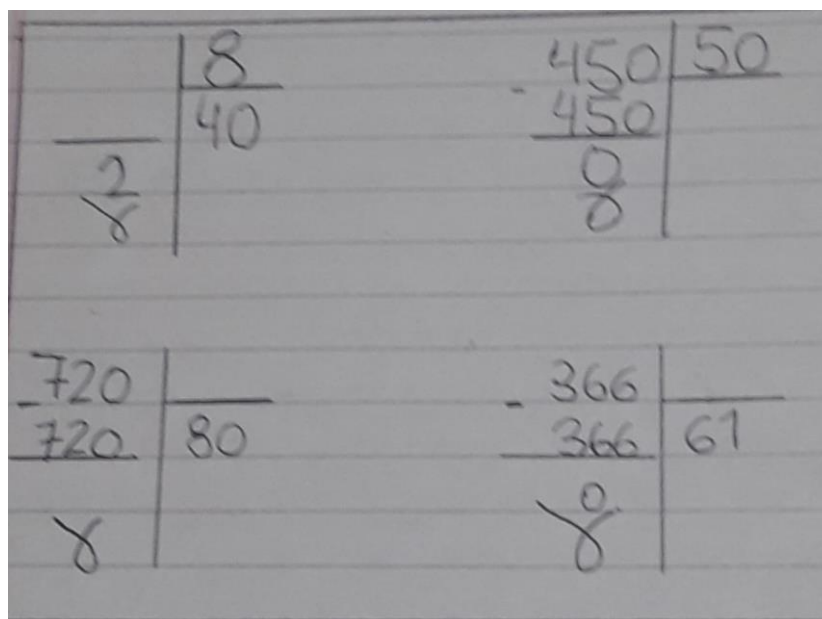 8
40
2
γ
- 450 50
450
0
0
- 720
720 80
γ
- 366
366 61
0
γ